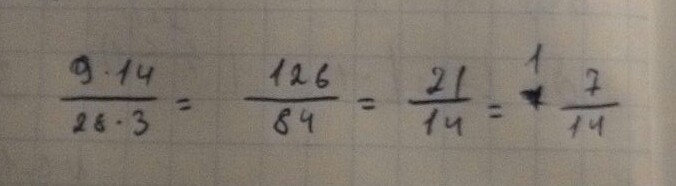 9·14/28·3 = 126/84 = 21/14 = 1 7/14